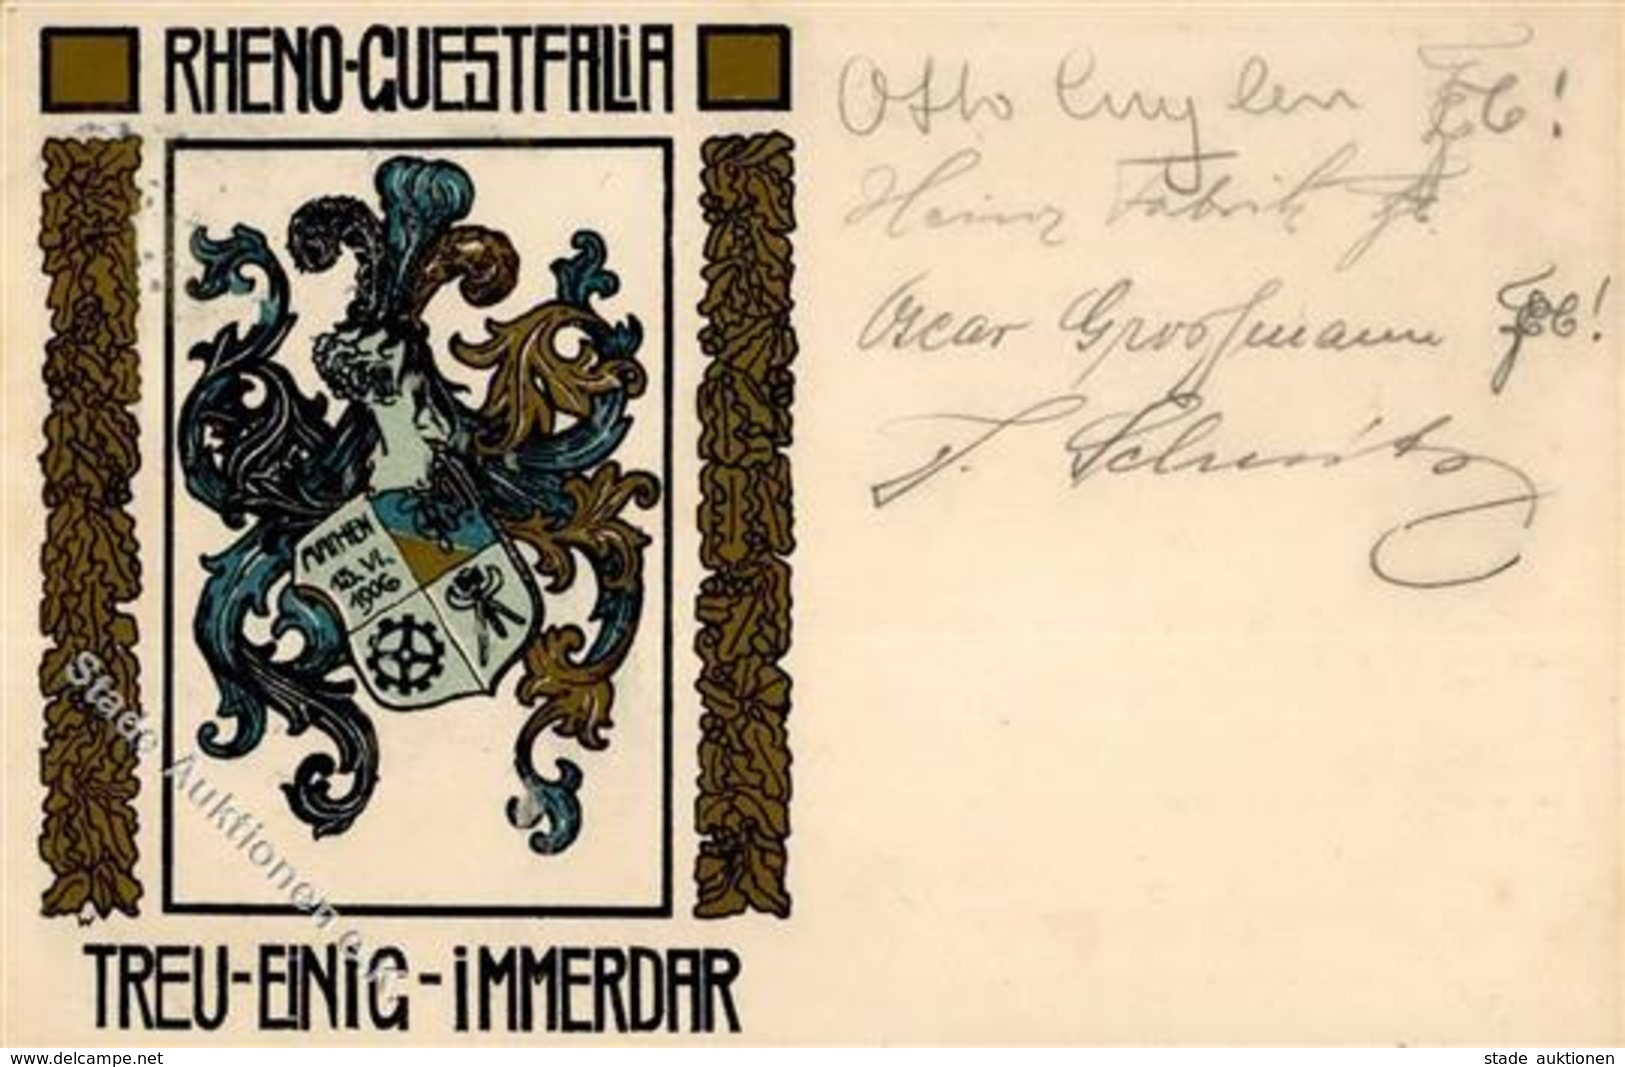 RHENO-GUESTFALiA
MATHEM
13. VI.
1906
TREU-EiNiG-iMMERDAR
Otto
Heinz Fabrik
Oscar Grossmann
Schmitz
Stade Auktionen
www.delcampe.net
stade auktionen